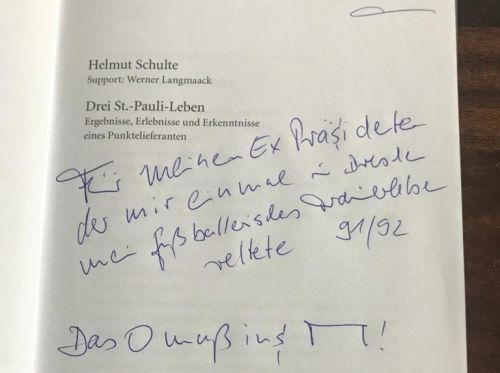 Helmut Schulte
Support: Werner Langmaack
Drei St.-Pauli-Leben
Ergebnisse, Erlebnisse und Erkenntnisse
eines Punktelieferanten
Für meinen Ex Präsidenten
der mir einmal in Dresden
mein fußballerisches Trainerleben
rettete 91/92
Das O muß ins !